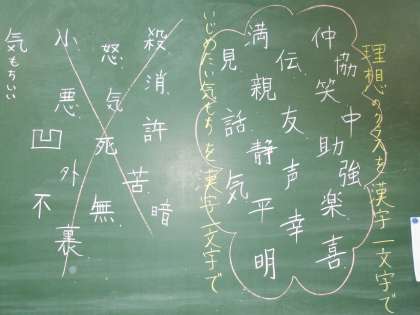 理想のクラスを漢字一文字で
仲協笑中助強楽喜
満伝親友静声平幸明
見話気
いじめたい気もちを漢字一文字で
殺消許苦暗
怒気死無
小悪凹外不裏
気もちいい